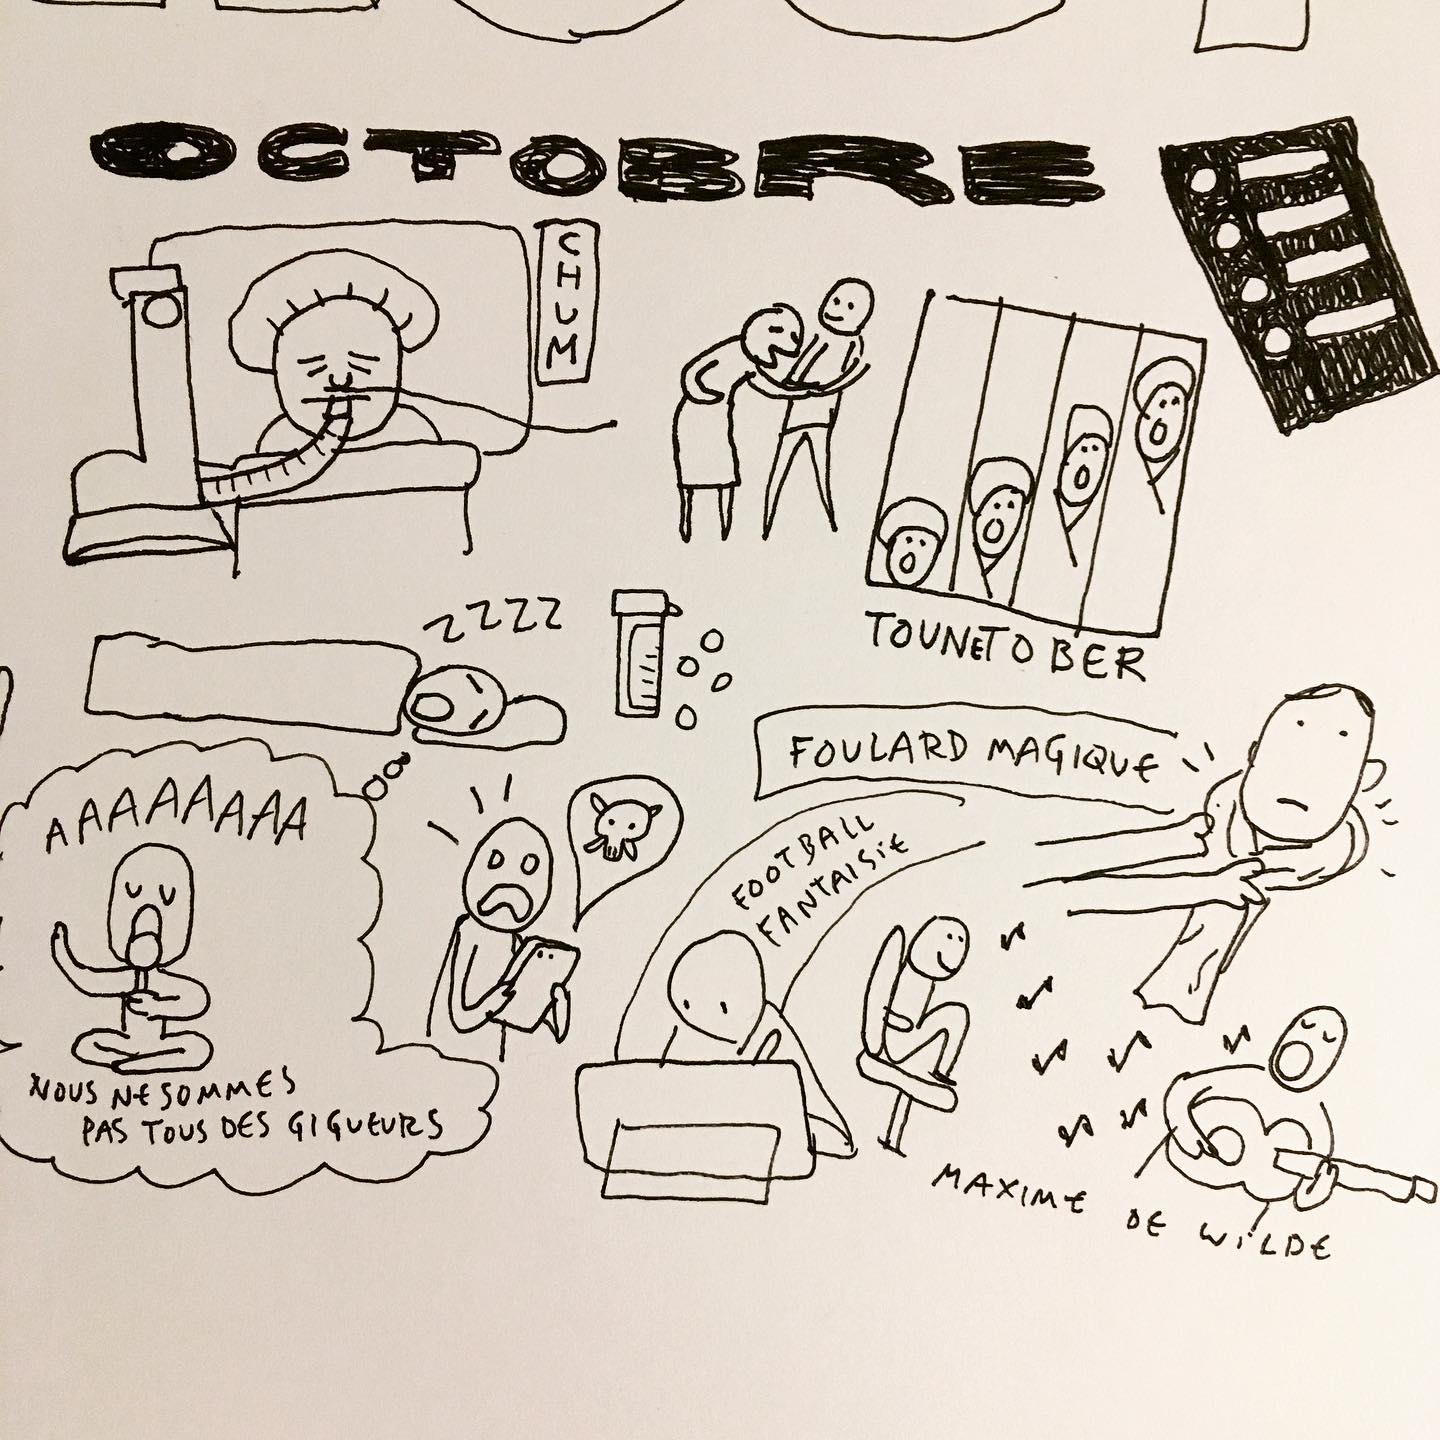 OCTOBRE
CHUM
TOUNETOBER
ZZZZ
FOULARD MAGIQUE
AAAAAAAA
FOOTBALL
FANTAISIE
NOUS NE SOMMES
PAS TOUS DES GIGUEURS
MAXIME DE WILDE